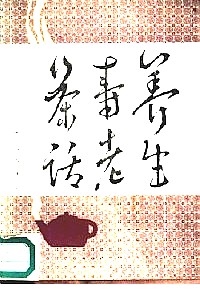 养生
寿老
茶话